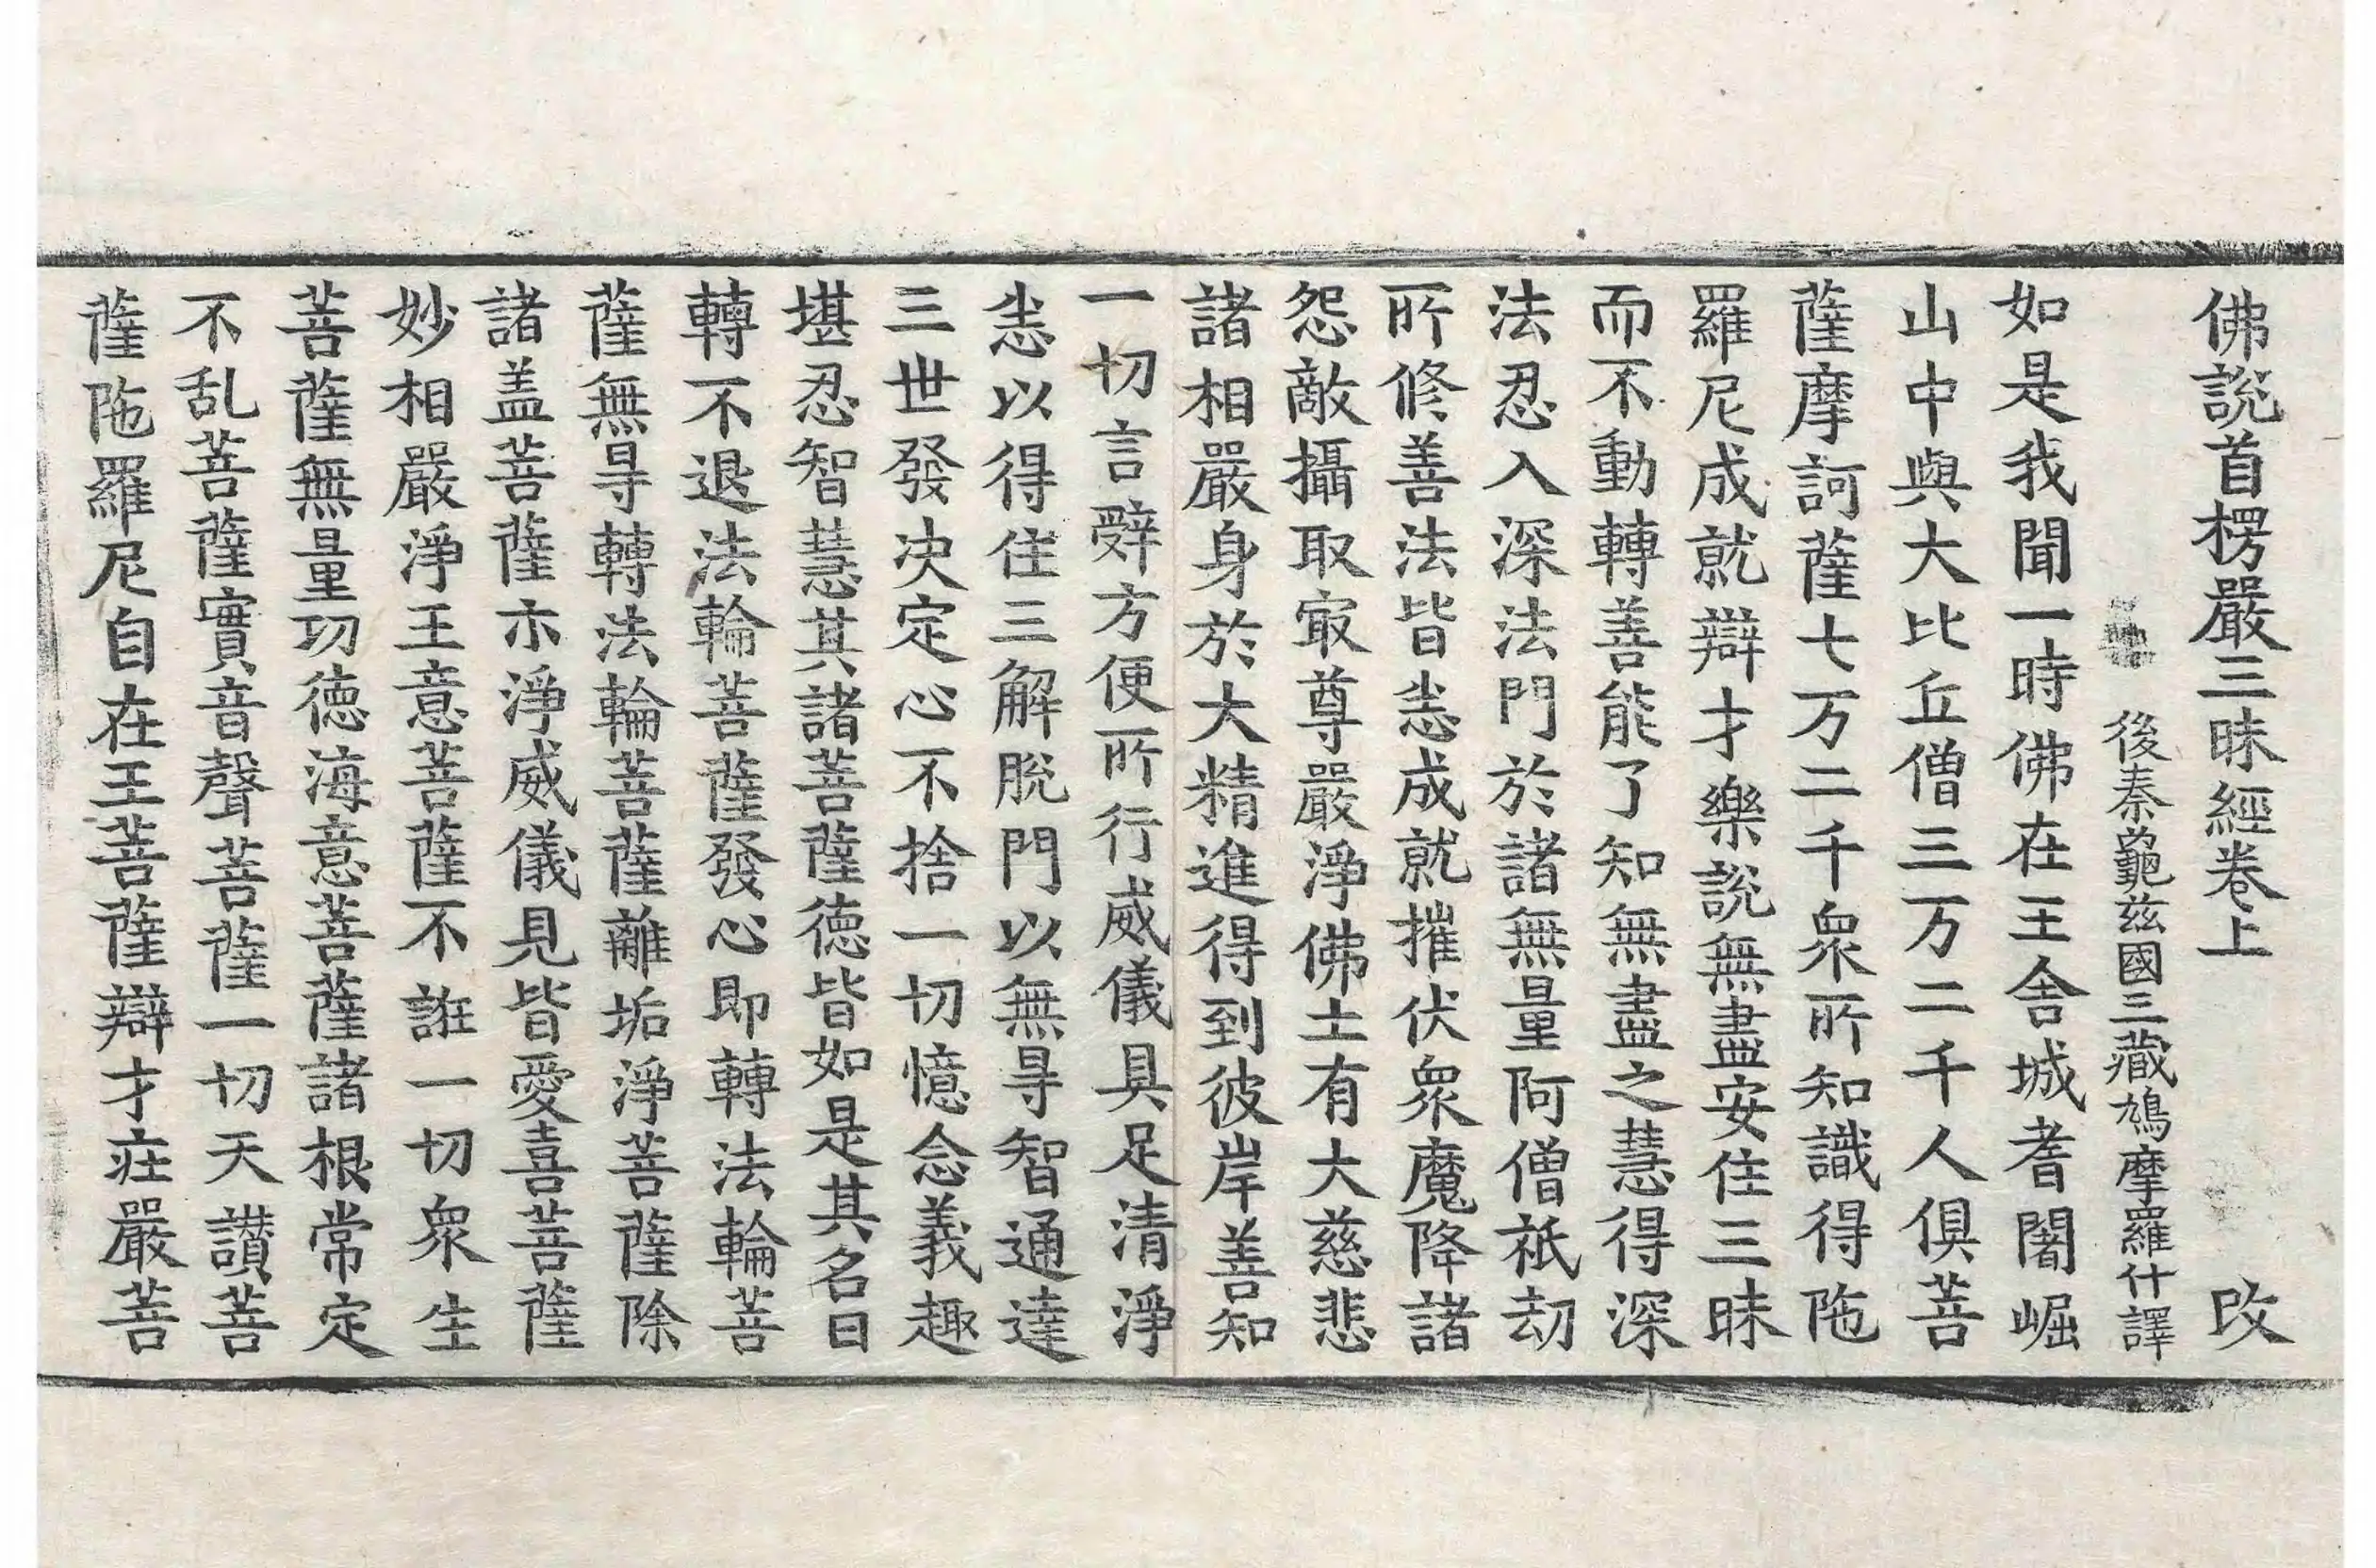 佛說首楞嚴三昧經卷上 改
後秦龜茲國三藏鳩摩羅什譯
如是我聞一時佛在王舍城耆闍崛
山中與大比丘僧三万二千人俱菩
薩摩訶薩七万二千衆所知識得陁
羅尼成就辯才樂說無盡安住三昧
而不動轉善能了知無盡之慧得深
法忍入深法門於諸無量阿僧祇劫
所修善法皆悉成就摧伏衆魔降諸
怨敵攝取㝡尊嚴淨佛土有大慈悲
諸相嚴身於大精進得到彼岸善知
一切言辭方便所行威儀具足清淨
悉以得住三解脫門以無㝵智通達
三世發决定心不捨一切憶念義趣
堪忍智慧其諸菩薩德皆如是其名曰
轉不退法輪菩薩發心即轉法輪菩
薩無㝵轉法輪菩薩離垢淨菩薩除
諸盖菩薩示淨威儀見皆愛喜菩薩
妙相嚴淨王意菩薩不誑一切衆生
菩薩無量功德海意菩薩諸根常定
不乱菩薩實音聲菩薩一切天讃菩
薩陁羅尼自在王菩薩辯才庄嚴菩